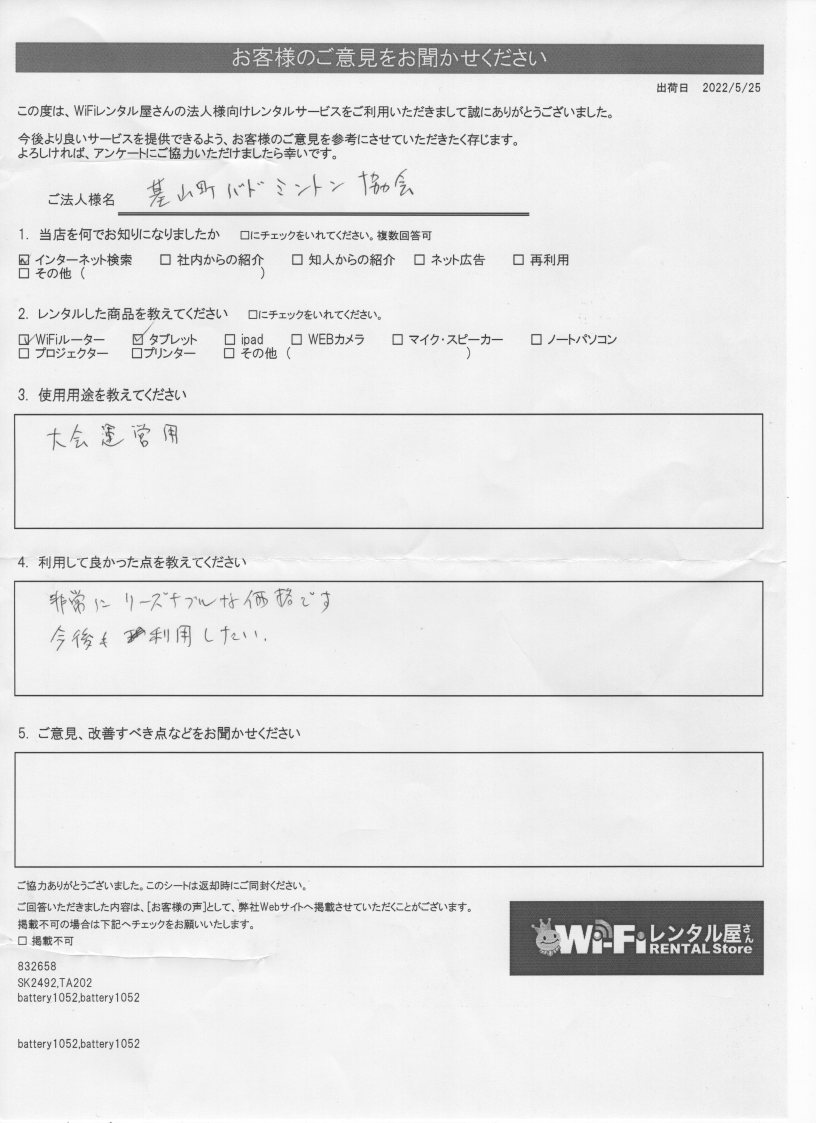 お客様のご意見をお聞かせください
出荷日 2022/5/25
この度は、WiFiレンタル屋さんの法人様向けレンタルサービスをご利用いただきまして誠にありがとうございました。
今後より良いサービスを提供できるよう、お客様のご意見を参考にさせていただきたく存じます。
よろしければ、アンケートにご協力いただけましたら幸いです。
ご法人様名 基山町バドミントン協会
1. 当店を何でお知りになりましたか □にチェックをいれてください。複数回答可
☑ インターネット検索 □ 社内からの紹介 □ 知人からの紹介 □ ネット広告 □ 再利用
□ その他 ( )
2. レンタルした商品を教えてください □にチェックをいれてください。
☑ WiFiルーター ☑ タブレット □ ipad □ WEBカメラ □ マイク・スピーカー □ ノートパソコン
□ プロジェクター □プリンター □ その他 ( )
3. 使用用途を教えてください
大会運営用
4. 利用して良かった点を教えてください
非常にリーズナブルな価格です
今後も利用したい。
5. ご意見、改善すべき点などをお聞かせください
ご協力ありがとうございました。このシートは返却時にご同封ください。
ご回答いただきました内容は、[お客様の声]として、弊社Webサイトへ掲載させていただくことがございます。
掲載不可の場合は下記へチェックをお願いいたします。
□ 掲載不可
Wi-Fiレンタル屋さん
RENTAL Store
832658
SK2492,TA202
battery1052,battery1052
battery1052,battery1052